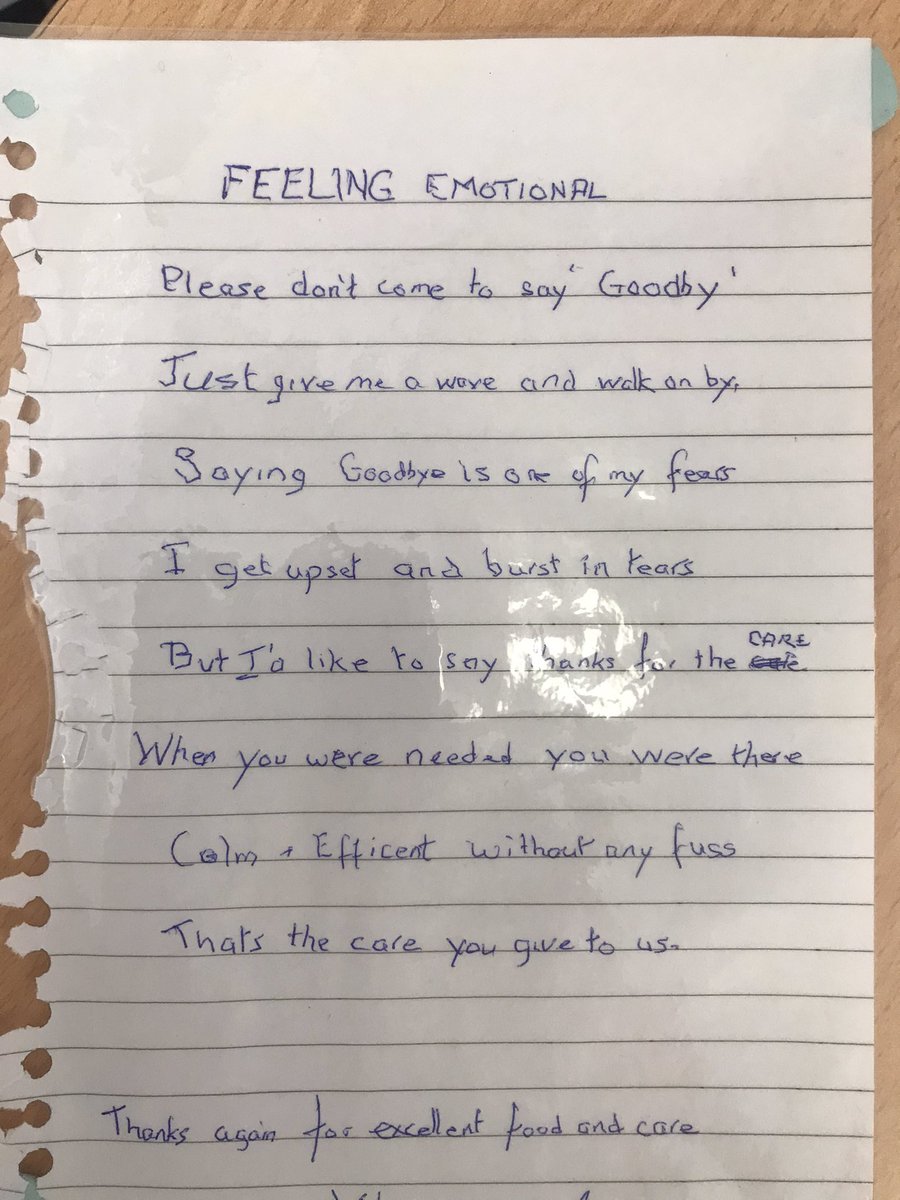 FEELING EMOTIONAL
Please don't come to say 'Goodby'
Just give me a wave and walk on by,
Saying Goodbye is one of my fears
I get upset and burst in tears
But I'd like to say thanks for the CARE
When you were needed you were there
Calm + Efficent without any fuss
Thats the care you give to us.
Thanks again for excellent food and care